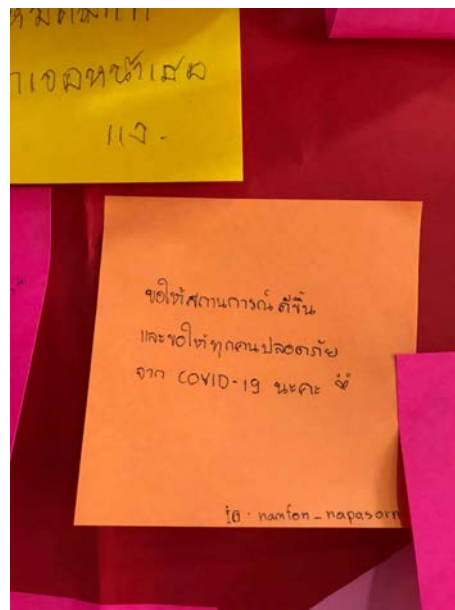 แง -
ขอให้สถานการณ์ดีขึ้น
และขอให้ทุกคนปลอดภัย
จาก COVID-19 นะคะ
ig : namfon_napasorn